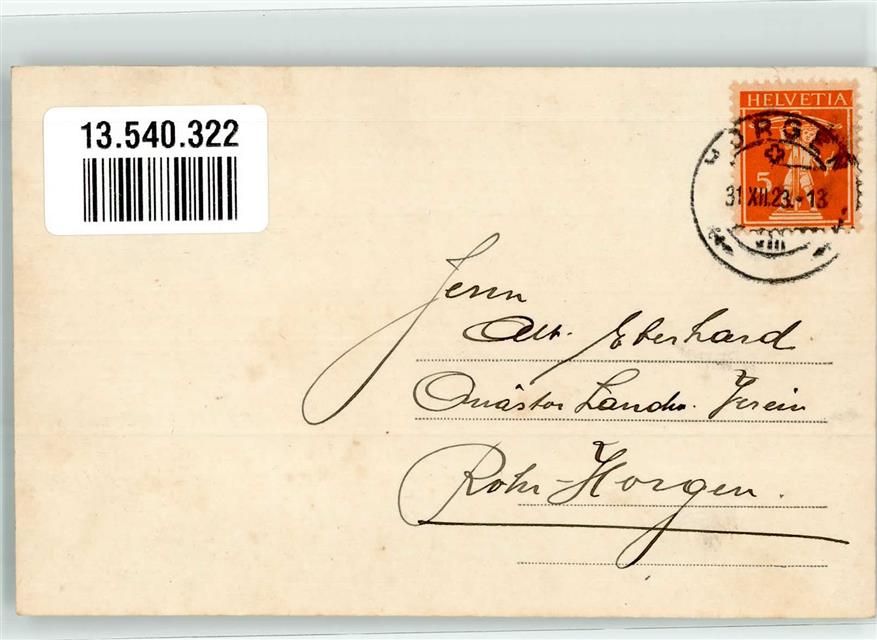 13.540.322
HELVETIA
HORGEN
5
31.XII.23.-13
VIII
Herrn
Alb. Eberhard
Quästor Landw. Verein
Rohr-Horgen.